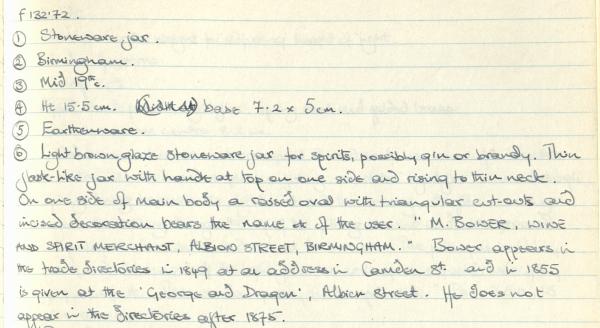 F132'72.
① Stoneware jar.
② Birmingham.
③ Mid 19th c.
④ Ht 15.5cm. base 7.2 x 5cm.
⑤ Earthenware.
⑥ Light brown glaze stoneware jar for spirits, possibly gin or brandy. Thin
flask-like jar with handle at top on one side and rising to thin neck.
On one side of main body a raised oval with triangular cut-outs and
incised decoration bears the name of the user. "M. BOWER, WINE
AND SPIRIT MERCHANT, ALBION STREET, BIRMINGHAM." Bower appears in
the trade directories in 1849 at an address in Camden St. and in 1855
is given at the 'George and Dragon', Albion Street. He does not
appear in the directories after 1875.